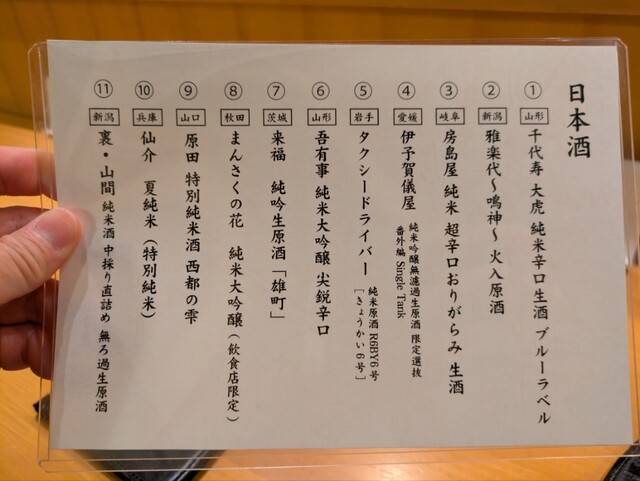 日本酒
① 山形 千代寿 大虎 純米辛口 生酒 ブルーラベル
② 新潟 雅楽代〜鳴神〜 火入原酒
③ 岐阜 房島屋 純米 超辛口おりがらみ 生酒
④ 愛媛 伊予賀儀屋 純米吟醸無濾過生原酒 限定選抜
番外編 Single Tank
⑤ 岩手 タクシードライバー 純米原酒 R6BY6号
［きょうかい6号］
⑥ 山形 吾有事 純米大吟醸 尖鋭辛口
⑦ 茨城 来福 純吟生原酒「雄町」
⑧ 秋田 まんさくの花 純米大吟醸（飲食店限定）
⑨ 山口 原田 特別純米酒 西都の雫
⑩ 兵庫 仙介 夏純米（特別純米）
⑪ 新潟 裏・山間 純米酒 中採り直詰め 無ろ過生原酒